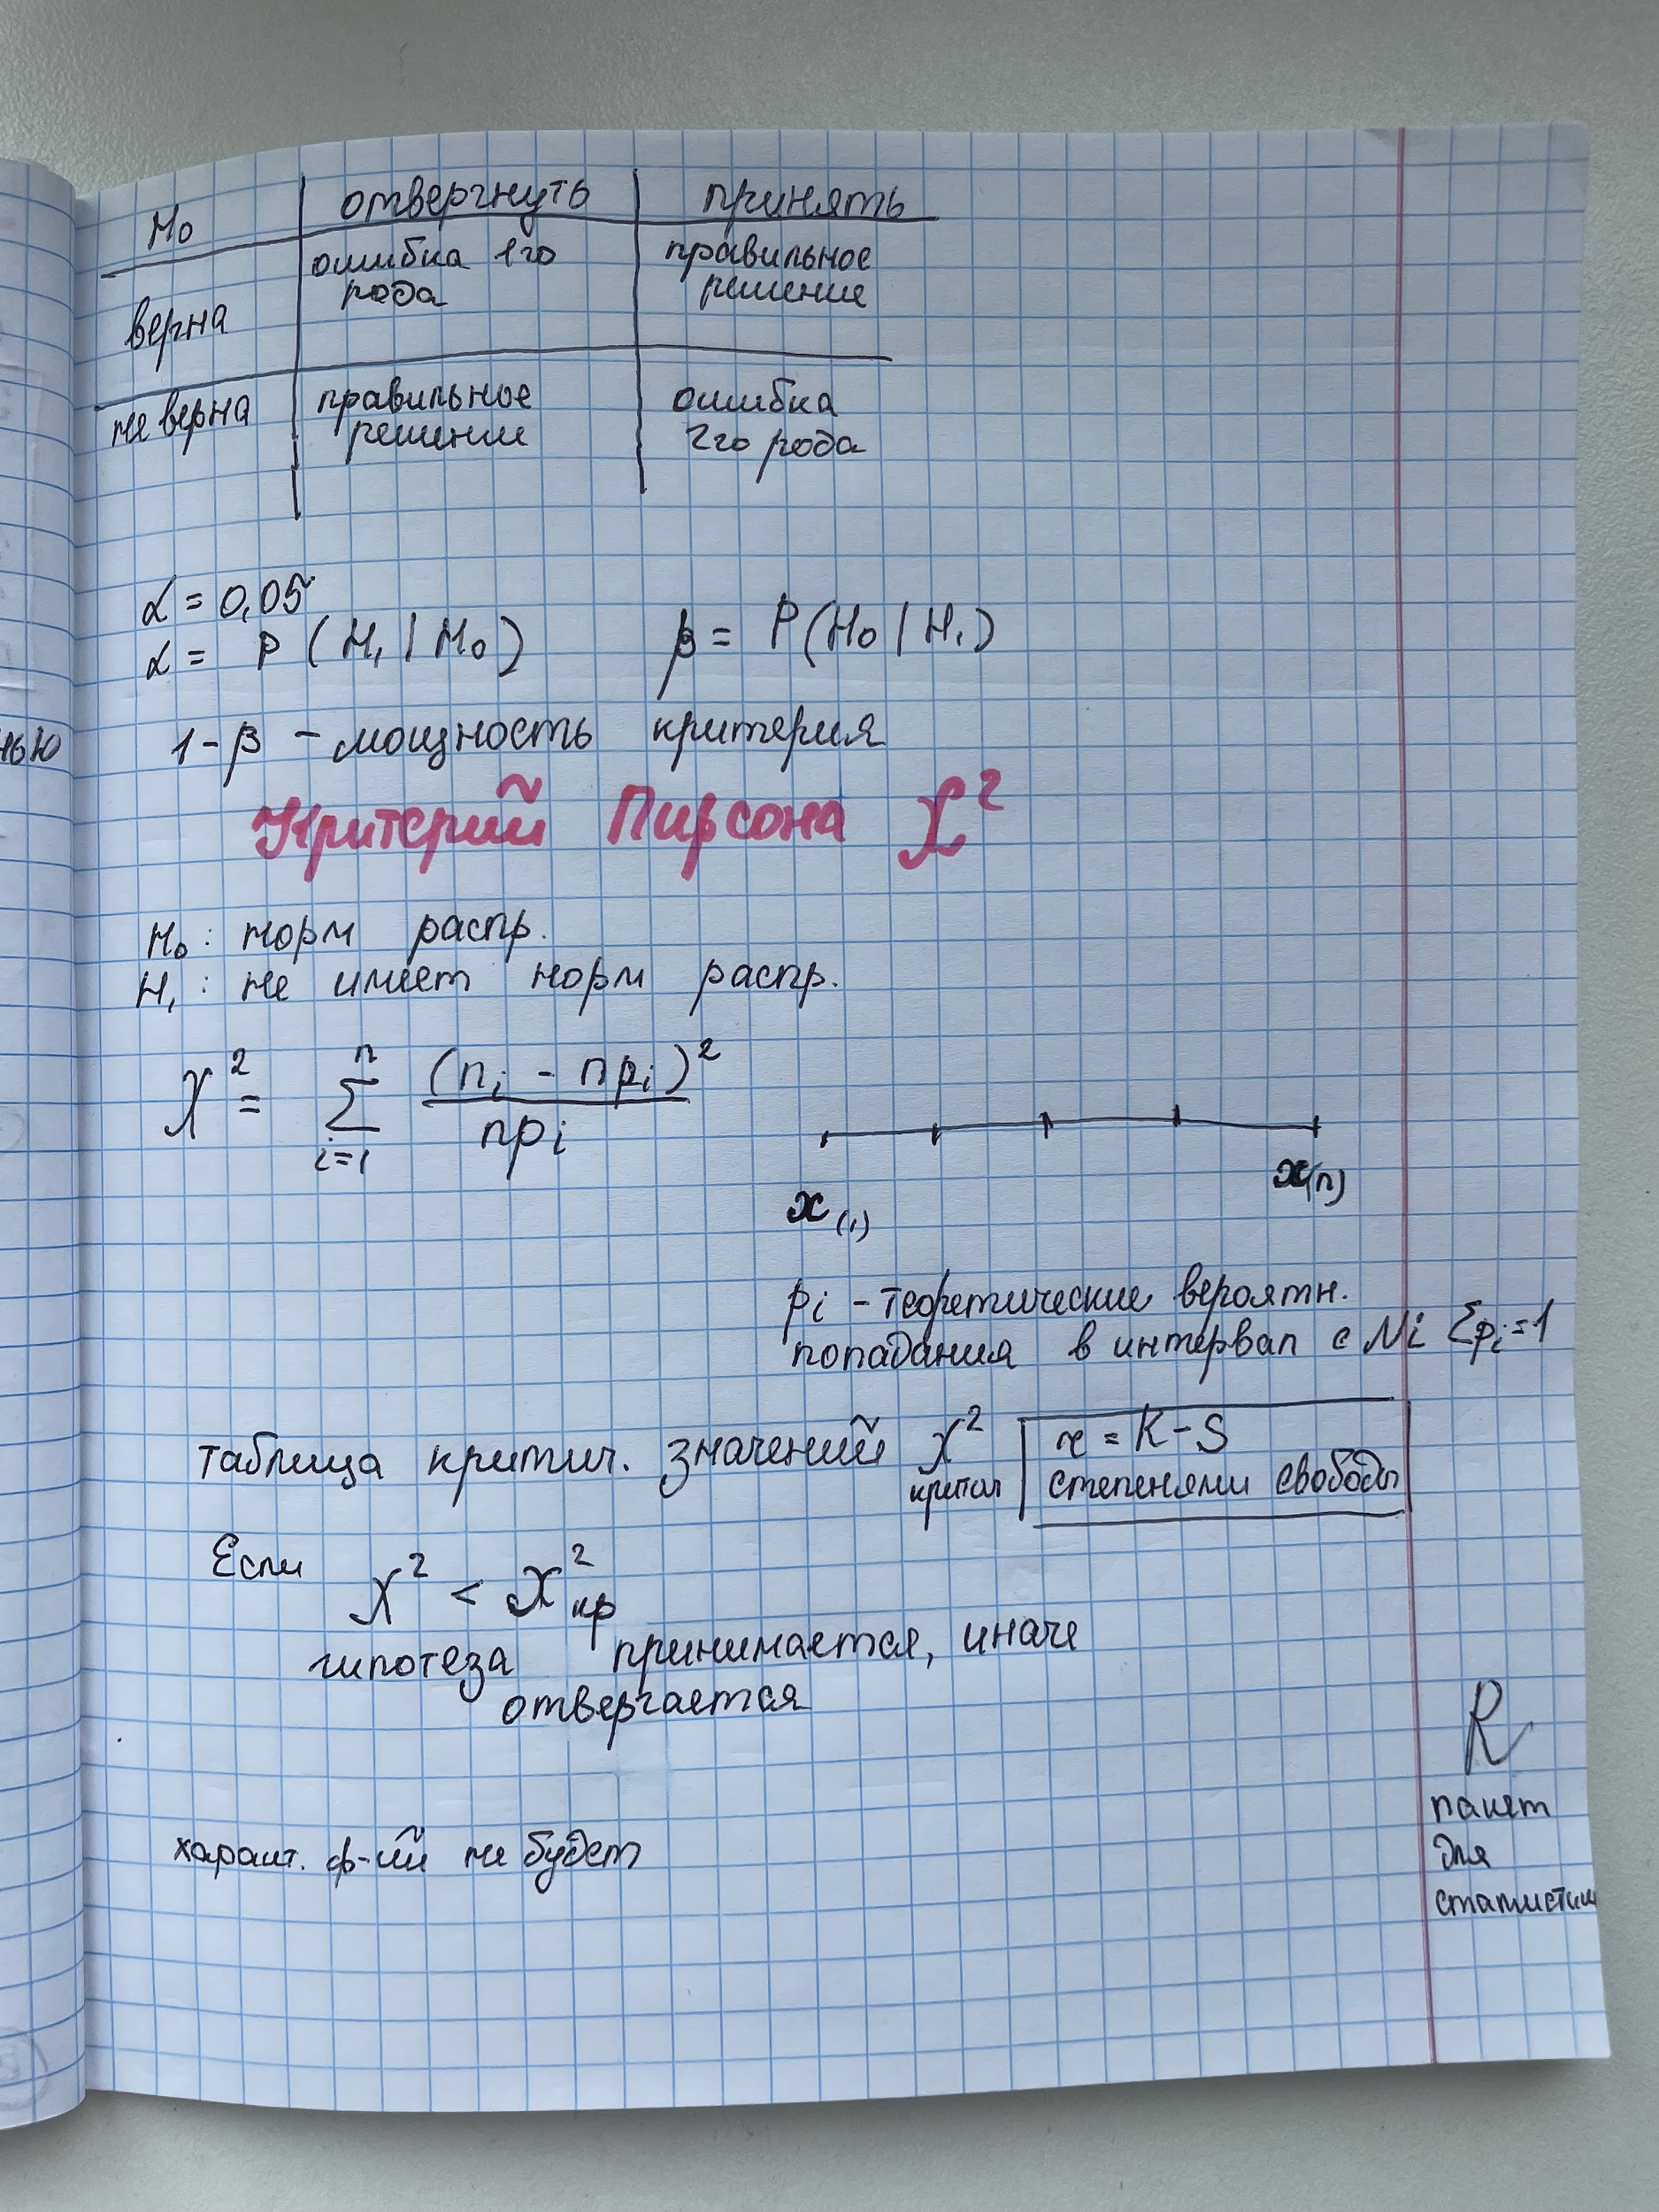 H₀ отвергнуть принять
верна ошибка 1го рода правильное решение
не верна правильное решение ошибка 2го рода
α = 0,05
α = P (H₁ | H₀) β = P(H₀ | H₁)
нью
1-β - мощность критерия
Критерий Пирсона χ²
H₀: норм распр.
H₁: не имеет норм распр.
χ² = Σ i=1 n (nᵢ - npᵢ)² / npᵢ
x₍₁₎ x₍ₙ₎
pᵢ - теоретические вероятн.
попадания в интервал с Ni Σpᵢ=1
таблица критич. значений χ² критич | r = K-S
степенями свободы
Если
χ² < χ²кр
гипотеза принимается, иначе
отвергается
R
пакет
для
статистик
характ. ф-ий не будет